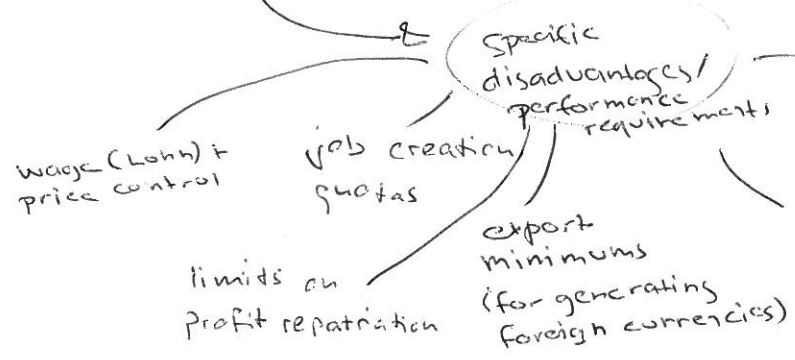 &
specific
disadvantages/
performance
requirements
wage (Lohn) +
price control
job creation
quotas
limits on
profit repatriation
export
minimums
(for generating
foreign currencies)